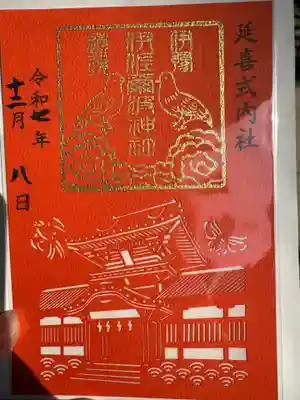 延喜式内社
伊豫
伊佐爾波神社
令和七年
十二月 八日